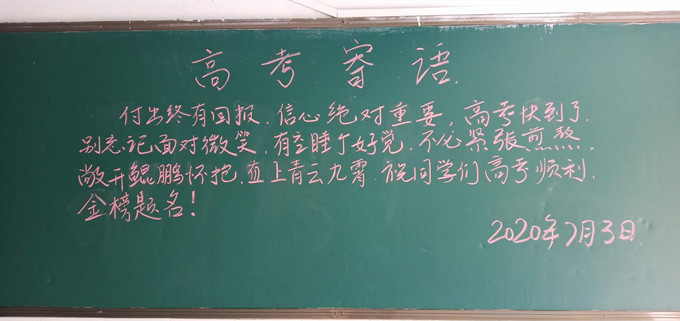 高考寄语
付出终有回报,信心绝对重要,高考快到了,
别忘记面对微笑,有空睡个好觉,不必紧张煎熬,
敞开鲲鹏怀抱,直上青云九霄,祝同学们高考顺利,
金榜题名!
2020年7月3日